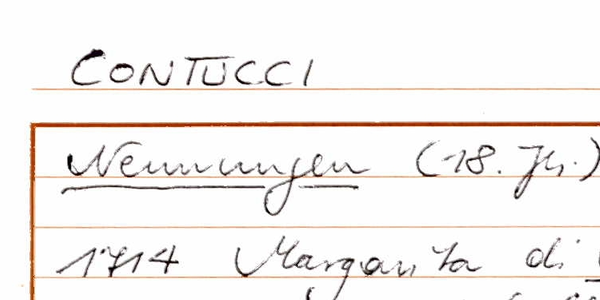 CONTUCCI
Nennungen (18. Jh.)
1714 Margarita di